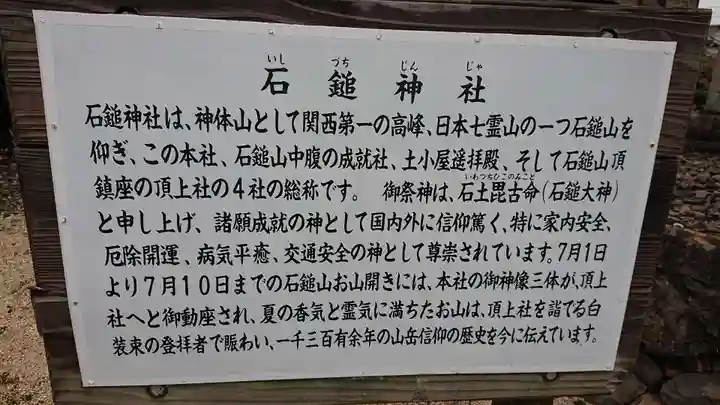 いし づち じん じゃ
石鎚神社
石鎚神社は、神体山として関西第一の高峰、日本七霊山の一つ石鎚山を
仰ぎ、この本社、石鎚山中腹の成就社、土小屋遥拝殿、そして石鎚山頂
鎮座の頂上社の4社の総称です。 御祭神は、石土毘古命(石鎚大神)
いわつちひこのみこと
と申し上げ、諸願成就の神として国内外に信仰篤く、特に家内安全、
厄除開運、病気平癒、交通安全の神として尊崇されています。7月1日
より7月10日までの石鎚山お山開きには、本社の御神像三体が、頂上
社へと御動座され、夏の香気と霊気に満ちたお山は、頂上社を詣でる白
装束の登拝者で賑わい、一千三百有余年の山岳信仰の歴史を今に伝えています。